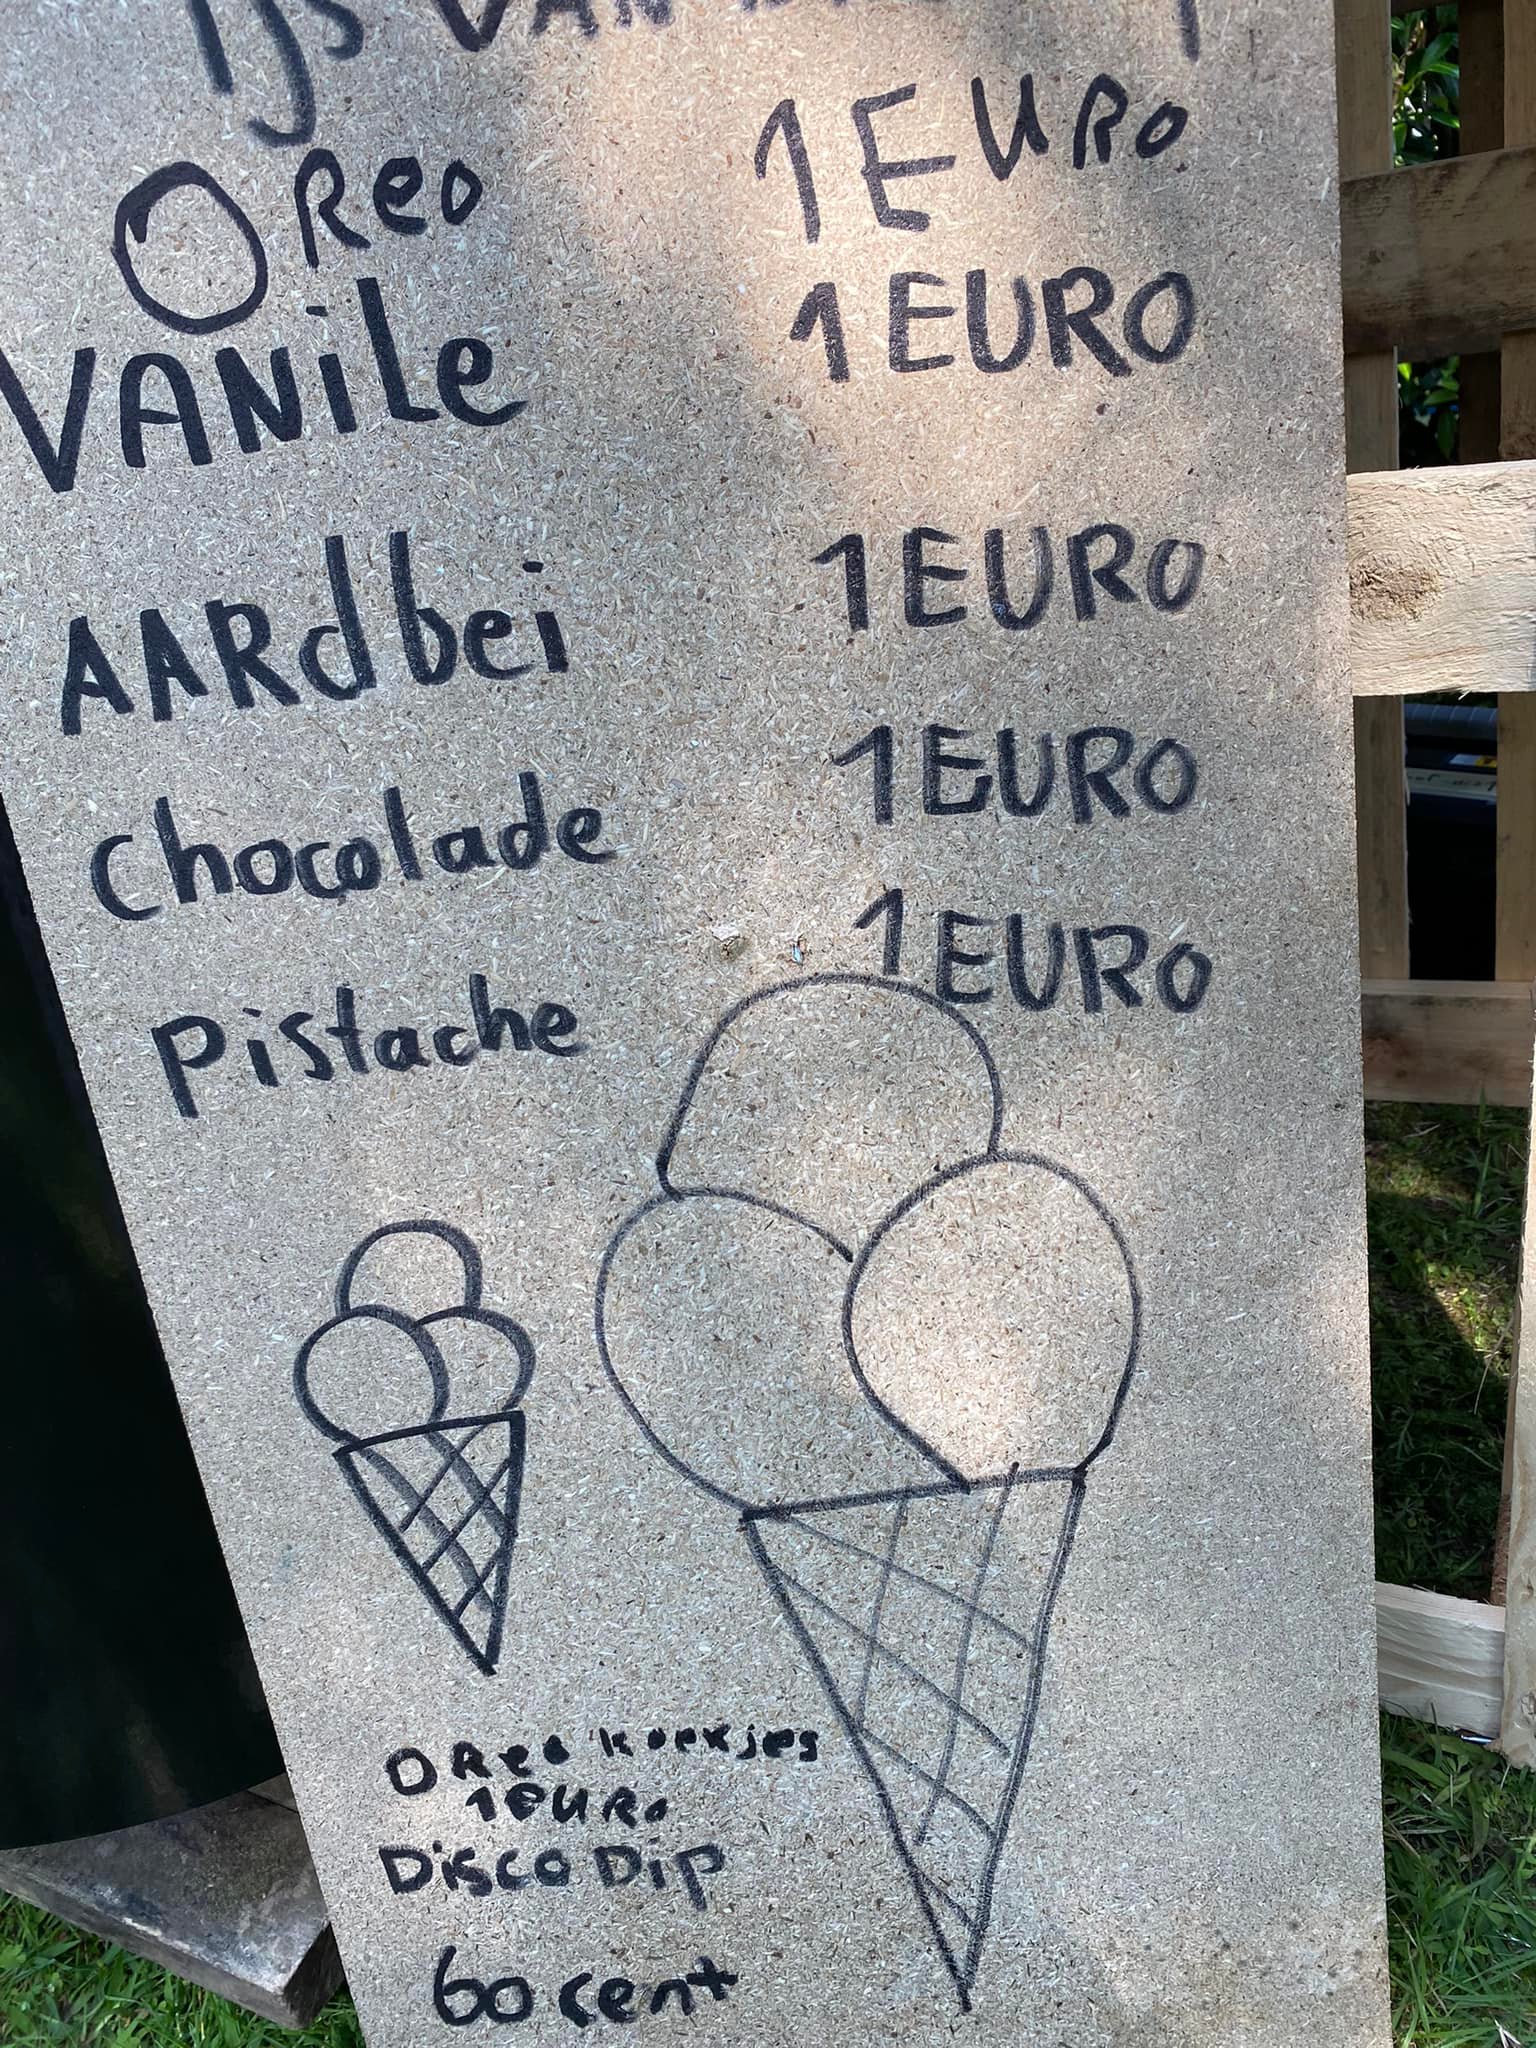 Ijs VAN
Oreo 1 EURO
VANiLe 1 EURO
AARdbei 1 EURO
chocolade 1 EURO
pistache 1 EURO
OReo koekjes
1 eURo
Disco Dip
60 cent